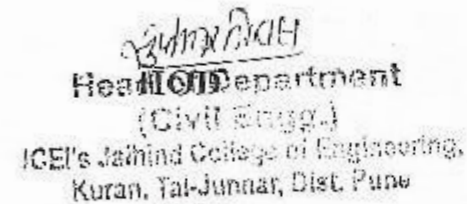 Head Of Department
(Civil Engg.)
ICEI's Jaihind College of Engineering,
Kuran, Tal-Junnar, Dist. Pune